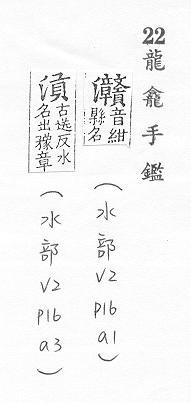 22龍龕手鑑
灨音紺縣名
(水部V2P16a1)
古送反水名出豫章
(水部V2P16a3)